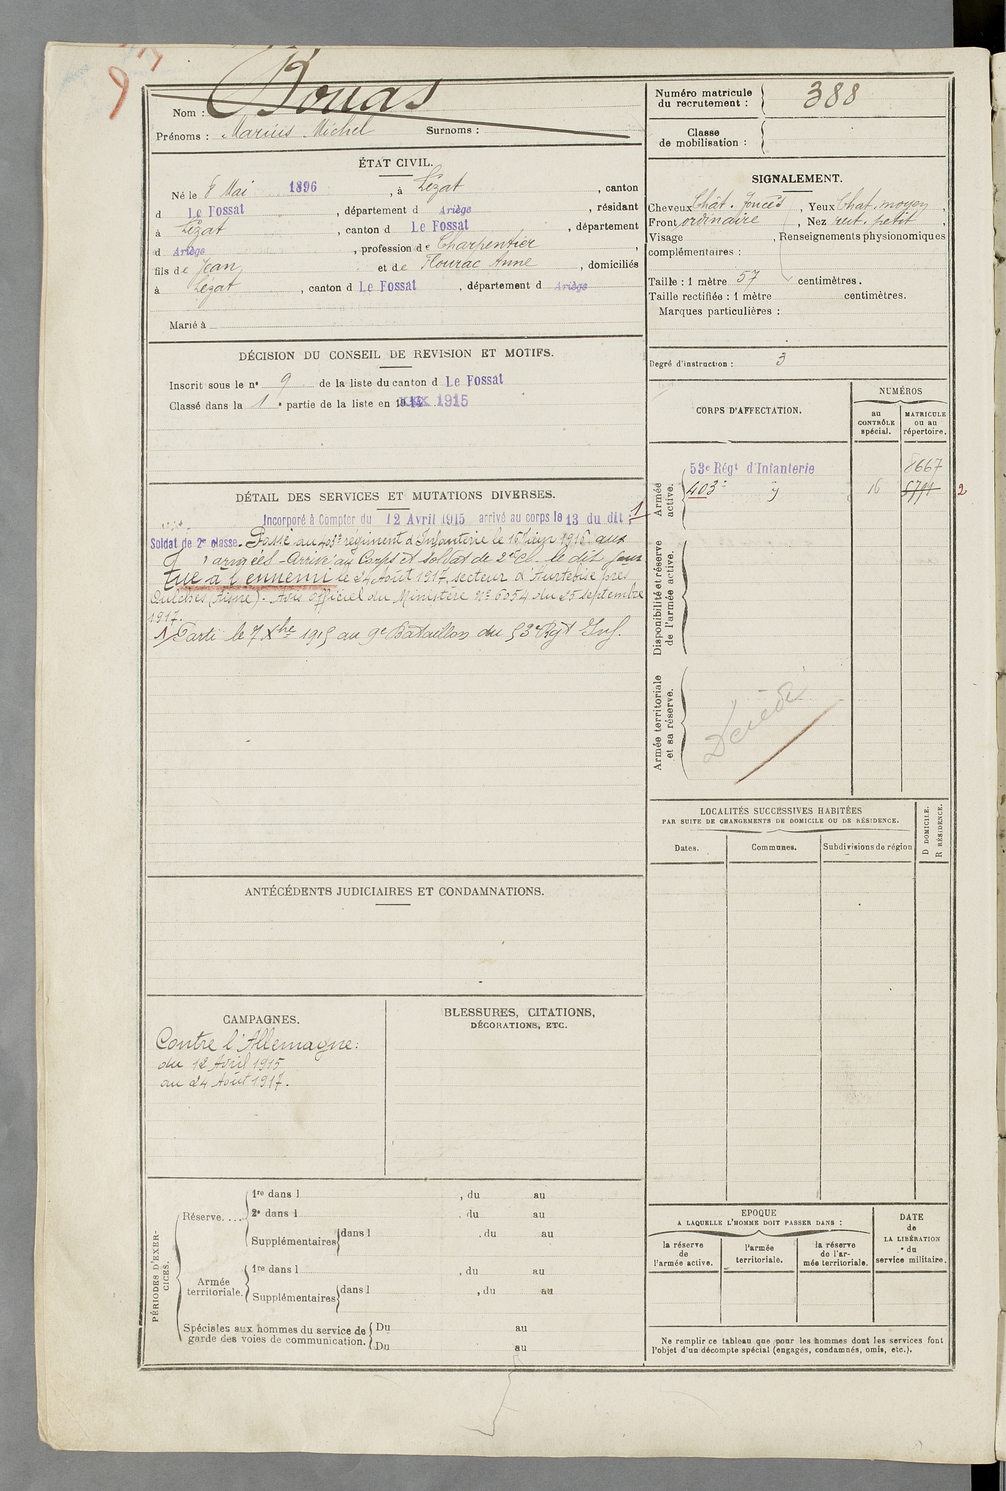 Nom : Bouas
Prénoms : Marius Michel Surnoms :
ÉTAT CIVIL.
Né le 8 Mai 1896, à Lézat, canton
d Le Fossat, département d Ariège, résidant
à Lézat, canton d Le Fossat, département
d Ariège, profession de Charpentier
fils de Jean et de Flourac Anne, domiciliés
à Lézat, canton d Le Fossat, département d Ariège
Marié à
DÉCISION DU CONSEIL DE REVISION ET MOTIFS.
Inscrit sous le n° 9 de la liste du canton d Le Fossat
Classé dans la 1e partie de la liste en 1915
DÉTAIL DES SERVICES ET MUTATIONS DIVERSES.
Incorporé à Compter du 12 Avril 1915 arrivé au corps le 13 du dit 1
Soldat de 2e classe. Passé au 403e régiment d'Infanterie le 16 1916 aux
armées - Arrivé au Corps et soldat de 2e Cl. le dit jour
tué à l'ennemi le 24 Août 1917, secteur d'Hurtebise près
(Aisne). Avis Officiel du Ministère N° 6054 du 25 septembre
1917.
1/ Parti le 7 Xbre 1915 au 9e Bataillon du 53e Rgt Inf.
ANTÉCÉDENTS JUDICIAIRES ET CONDAMNATIONS.
CAMPAGNES.
Contre l'Allemagne:
du 12 Avril 1915
au 24 Août 1917.
BLESSURES, CITATIONS,
DÉCORATIONS, ETC.
PÉRIODES D'EXER-
CICES.
Réserve....
1re dans l , du au
2e dans l , du au
Supplémentaires dans l , du au
Armée
territoriale.
1re dans l , du au
Supplémentaires dans l , du au
Spéciales aux hommes du service de
garde des voies de communication.
Du au
Du au
Numéro matricule
du recrutement : 388
Classe
de mobilisation :
SIGNALEMENT.
Cheveux Chât. foncés, Yeux Chat. moyen,
Front ordinaire, Nez rect. petit,
Visage , Renseignements physionomiques
complémentaires :
Taille : 1 mètre 57 centimètres.
Taille rectifiée : 1 mètre centimètres.
Marques particulières :
Degré d'instruction : 3
CORPS D'AFFECTATION.
NUMÉROS
au
CONTRÔLE
spécial.
MATRICULE
ou au
répertoire.
Armée
active.
53e Régt d'Infanterie 8667
403e 16 2
Disponibilité et réserve
de l'armée active.
Armée territoriale
et sa réserve.
Décédé
LOCALITÉS SUCCESSIVES HABITÉES
PAR SUITE DE CHANGEMENTS DE DOMICILE OU DE RÉSIDENCE.
Dates.
Communes.
Subdivisions de région
D DOMICILE.
R RÉSIDENCE.
EPOQUE
A LAQUELLE L'HOMME DOIT PASSER DANS :
la réserve
de
l'armée active.
l'armée
territoriale.
la réserve
de l'ar-
mée territoriale.
DATE
de
LA LIBÉRATION
du
service militaire.
Ne remplir ce tableau que pour les hommes dont les services font
l'objet d'un décompte spécial (engagés, condamnés, omis, etc.).